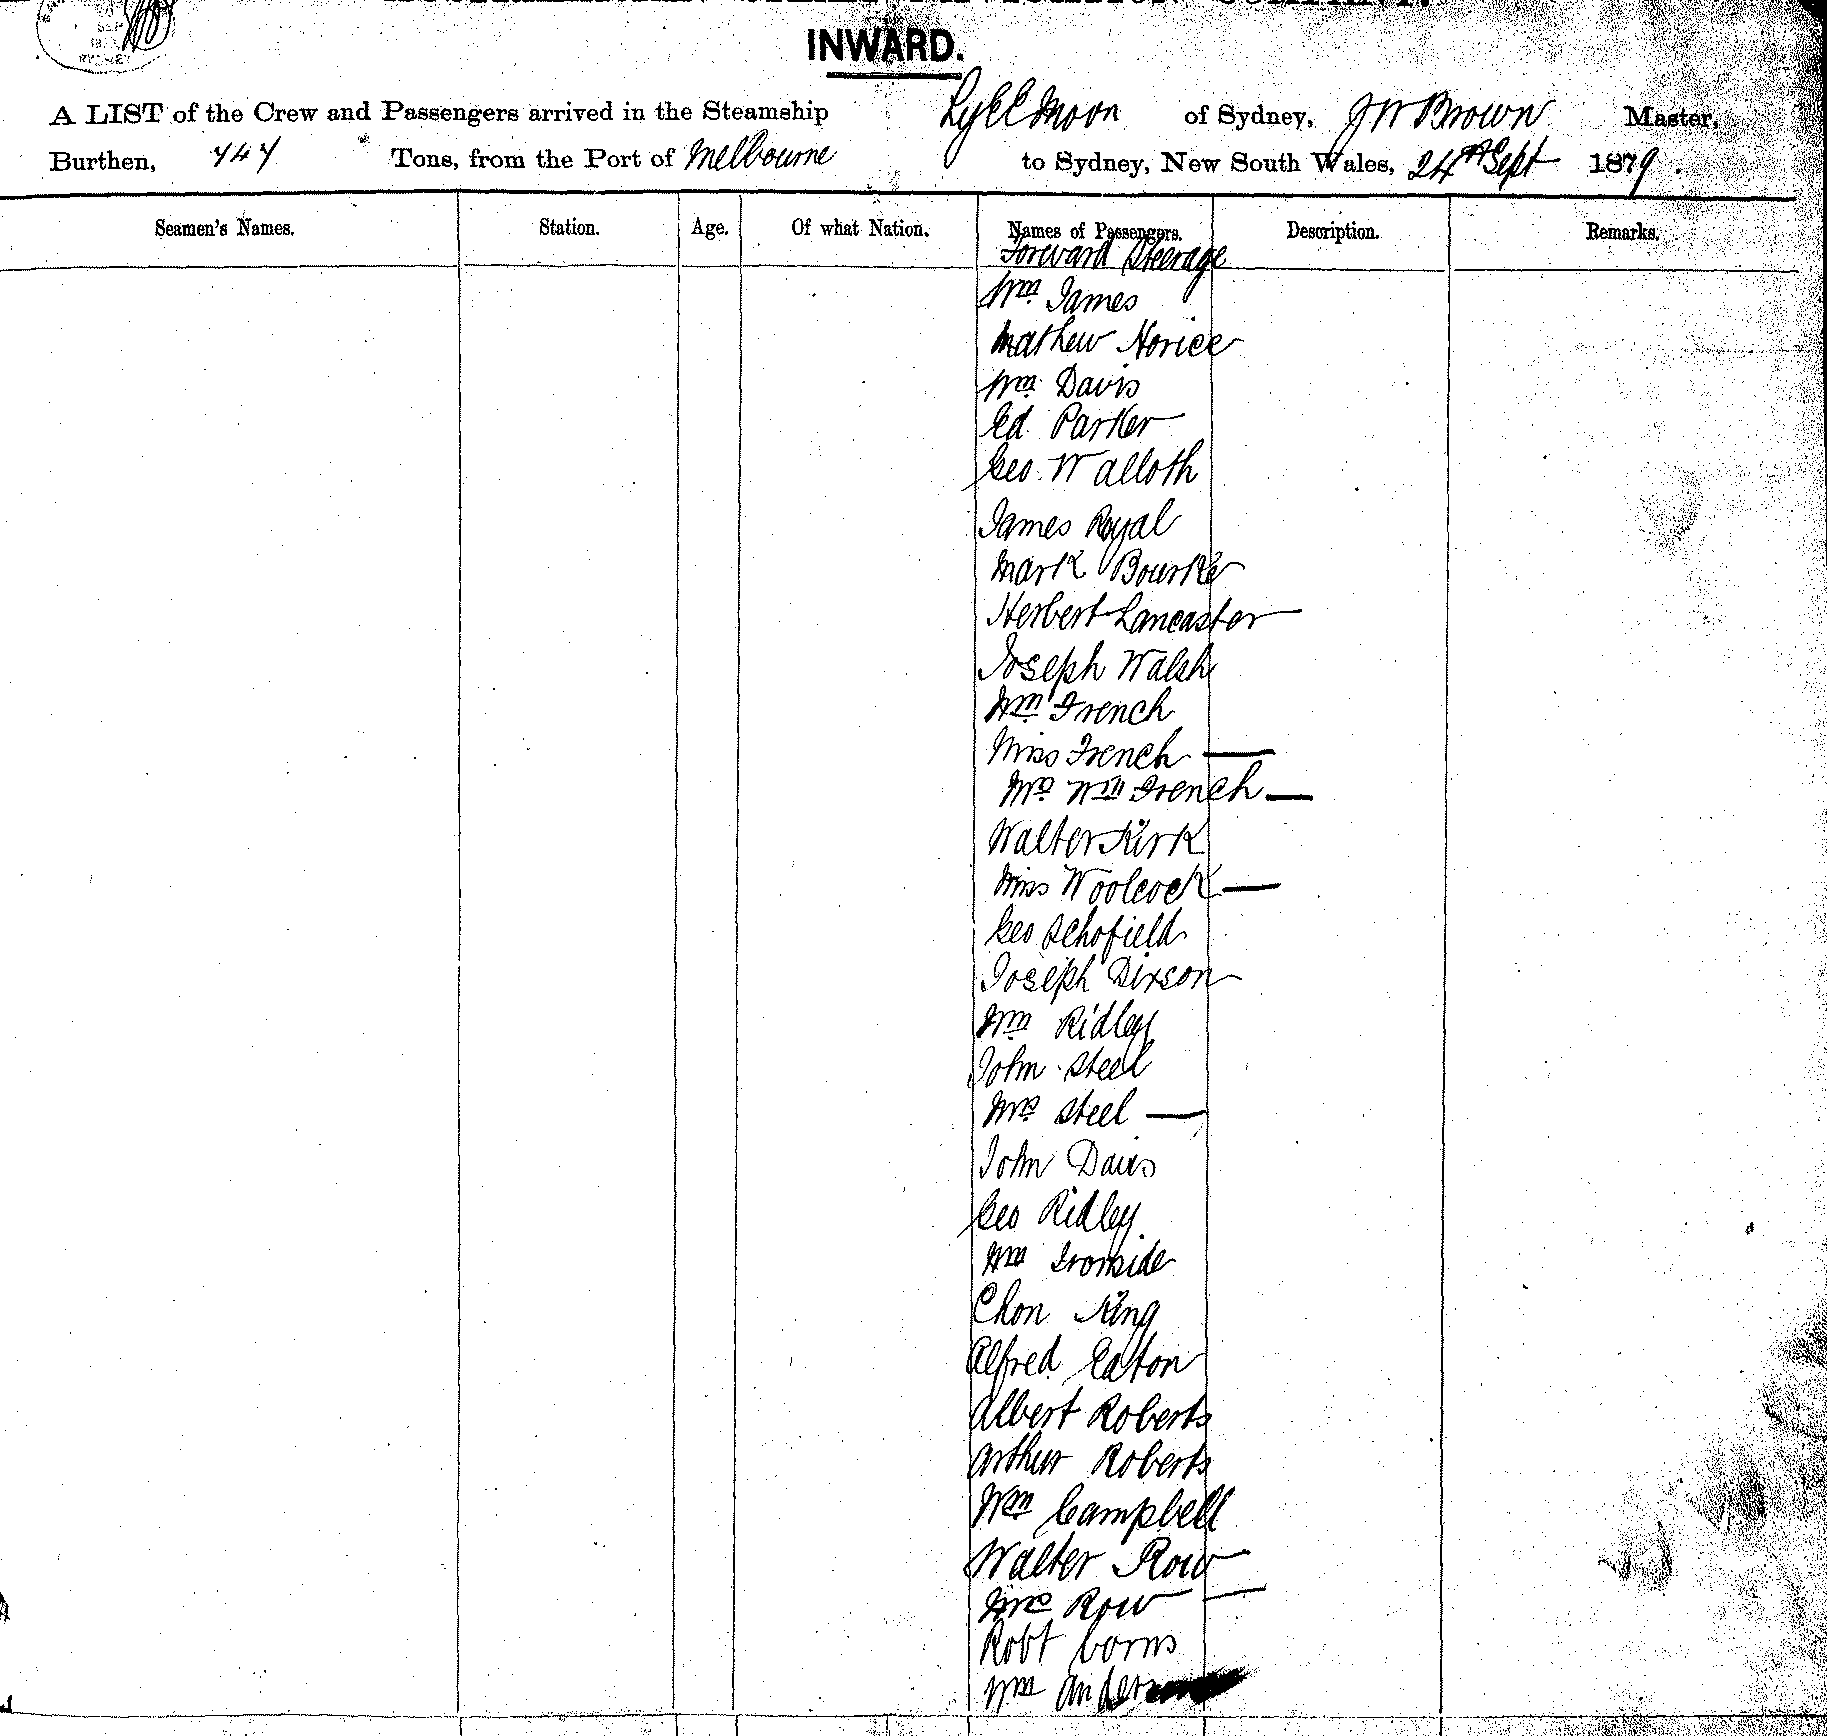 INWARD.
A LIST of the Crew and Passengers arrived in the Steamship Ly EE Moon of Sydney, JW Brown Master,
Burthen, 747 Tons, from the Port of Melbourne to Sydney, New South Wales, 24th Sept 1879.
Seamen's Names. Station. Age. Of what Nation. Names of Passengers. Description. Remarks.
Forward Steerage
Wm James
Mathew Norice
Wm Davis
Ed Parker
Geo Walloth
James Royal
Mark Bourke
Herbert Lancaster
Joseph Walsh
Wm French
Miss French —
Mrs Wm French —
Walter Kirk
Miss Woolcock —
Geo Schofield
Joseph Dixson
Wm Ridley
John Steel
Mrs Steel —
John Davis
Geo Ridley
Wm Ironside
Chon King
Alfred Eaton
Albert Roberts
Arthur Roberts
Wm Campbell
Walter Row
Mrs Row —
Robt Corns
Wm